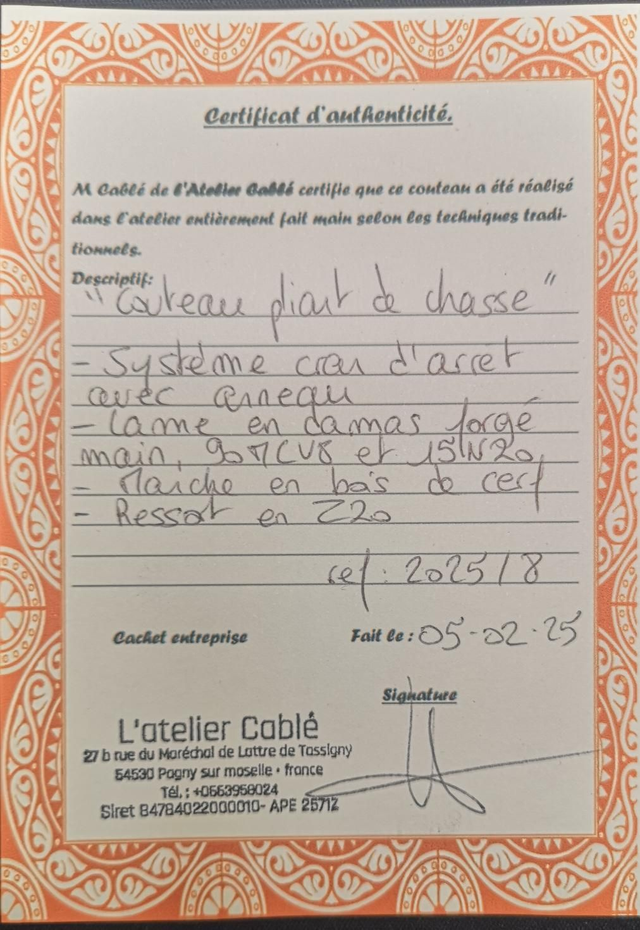 Certificat d'authenticité.
M Cablé de l'Atelier Cablé certifie que ce couteau a été réalisé
dans l'atelier entièrement fait main selon les techniques tradi-
tionnels.
Descriptif:
"Couteau pliant de chasse"
- Système cran d'arret
avec anneau
- Lame en damas forgé
main, 90MCV8 et 15N20,
- Manche en bois de cerf
- Ressort en Z20
ref : 2025/8
Cachet entreprise
Fait le : 05-02-25
Signature
L'atelier Cablé
27 b rue du Maréchal de Lattre de Tassigny
54530 Pagny sur moselle • france
Tél, : +0663958024
Siret 84784022000010- APE 2571Z